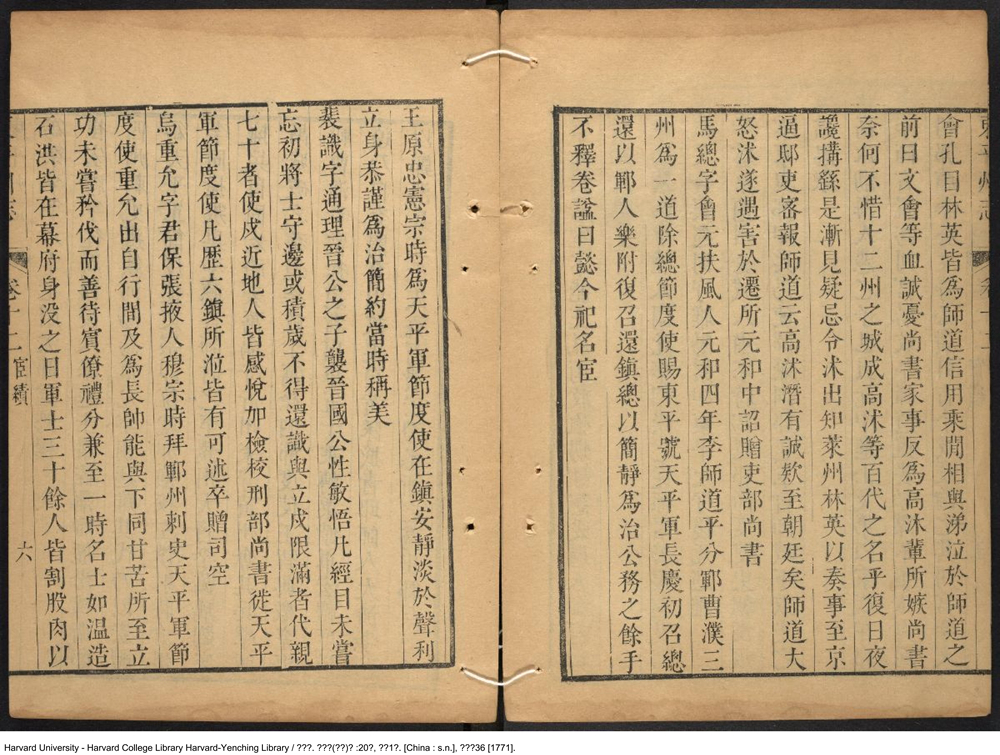 會孔目林英皆為師道信用乘閒相與涕泣於師道之
前曰文會等血誠憂尚書家事反為高沐輩所嫉尚書
奈何不惜十二州之城成高沐等百代之名乎復日夜
讒搆繇是漸見疑忌令沐出知萊州林英以奏事至京
逼邸吏密報師道云高沐潛有誠欵至朝廷矣師道大
怒沐遂遇害於遷所元和中詔贈吏部尚書
馬總字會元扶風人元和四年李師道平分鄆曹濮三
州為一道除總節度使賜東平號天平軍長慶初召總
還以鄆人樂附復召還鎮總以簡靜為治公務之餘手
不釋卷謚曰懿今祀名宦
王原忠憲宗時為天平軍節度使在鎮安靜淡於聲利
立身恭謹為治簡約當時稱美
裴識字通理晉公之子襲晉國公性敏悟凡經目未嘗
忘初將士守邊或積歲不得還識與立戍限滿者代親
七十者使戍近地人皆感悅加檢校刑部尚書徙天平
軍節度使凡歷六鎮所涖皆有可述卒贈司空
烏重允字君保張掖人穆宗時拜鄆州刺史天平軍節
度使重允出自行間及為長帥能與下同甘苦所至立
功未嘗矜伐而善待賓僚禮分兼至一時名士如溫造
石洪皆在幕府身没之日軍士三十餘人皆割股肉以
卷十二 宦績
六
Harvard University - Harvard College Library Harvard-Yenching Library / ???. ???(??)? :20?, ??1?. [China : s.n.], ???36 [1771].